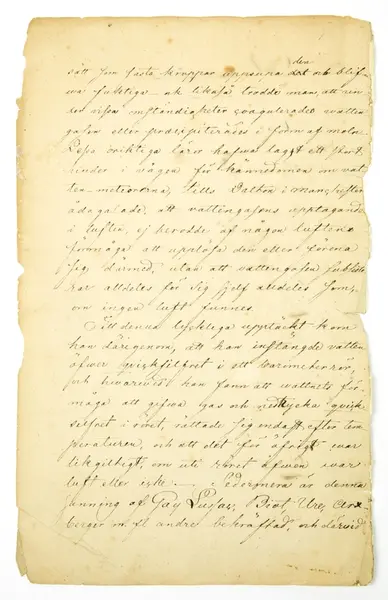 den
sätt som fasta kroppar uppsuga det och blif-
wa fuktiga och likaså trodde man, att un-
der vissa omständigheter coagulerades vatten-
gasen eller precipiterades i form af moln.
Dessa oriktiga läror hafwa lagt ett stort
hinder i vägen för kännedomen om vat-
ten-meteorerna, tills Dalton i Manchester
ådagalade, att vattengasens upptagande
i luften, ej berodde af någon luftens
förmåga att upplösa den eller förena
sig därmed, utan att vattengasen subsiste-
rar alldeles för sig sjelf alldeles som,
om ingen luft funnes.
Till denna lyckliga upptäckt kom
han därigenom, att han instängde vatten
öfwer qvicksilfret i ett barometerrör,
och hwarwid han fann att wattnets för-
måga att gifwa gas och nedtrycka qvick-
silfret i röret, rättade sig endast efter tem-
peraturen, och att det för öfrigt war
likgiltigt, om uti röret äfwen war
luft eller icke. — Sedermera är denna
sanning af Gay Lussac, Biot, Ure,
berger m. fl. andre bekräftad, och därvid